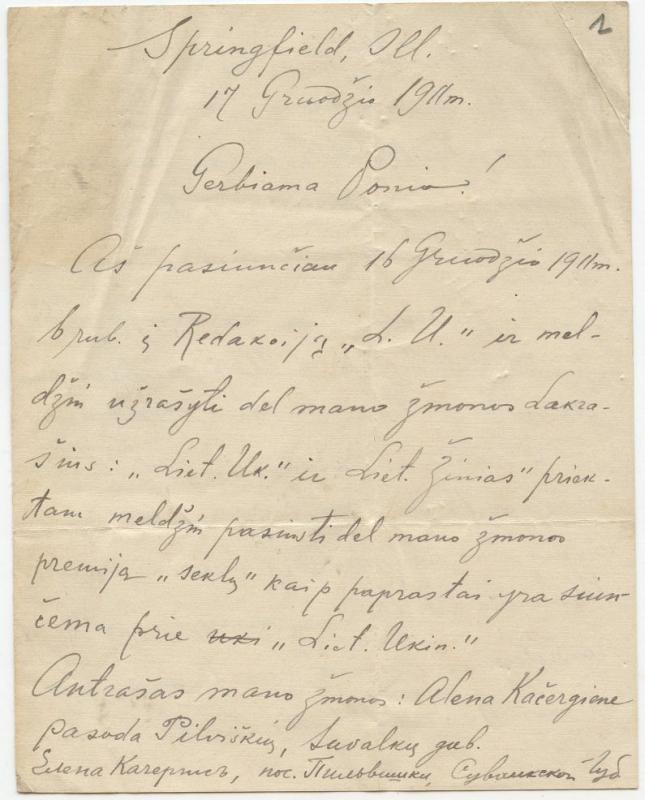 1
Springfield, Ill.
17 Gruodžio 1911m.
Gerbiama Ponia!
Aš pasiunčiau 16 Gruodžio 1911m.
6 rub. į Redakciją „L. U.“ ir mel-
džiu užrašyti del mano žmonos Lakra-
šius: „Liet. Uk.“ ir Liet. Žinias“ priek-
tam meldžiu pasiusti del mano žmonos
premiją „seklų“ kaip paprastai yra siun-
čema prie uki „Liet. Ukin.“
Antrašas mano žmonos: Alena Kačergiene
pasoda Pilviškių, Suvalkų gub.
Елена Качергисъ, пос. Пильвишки, Сувалкской Губ